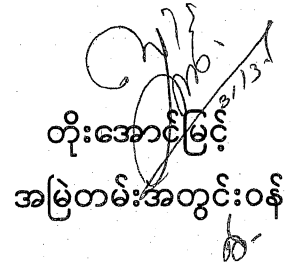 တိုးအောင်မြင့်
အမြဲတမ်းအတွင်းဝန်